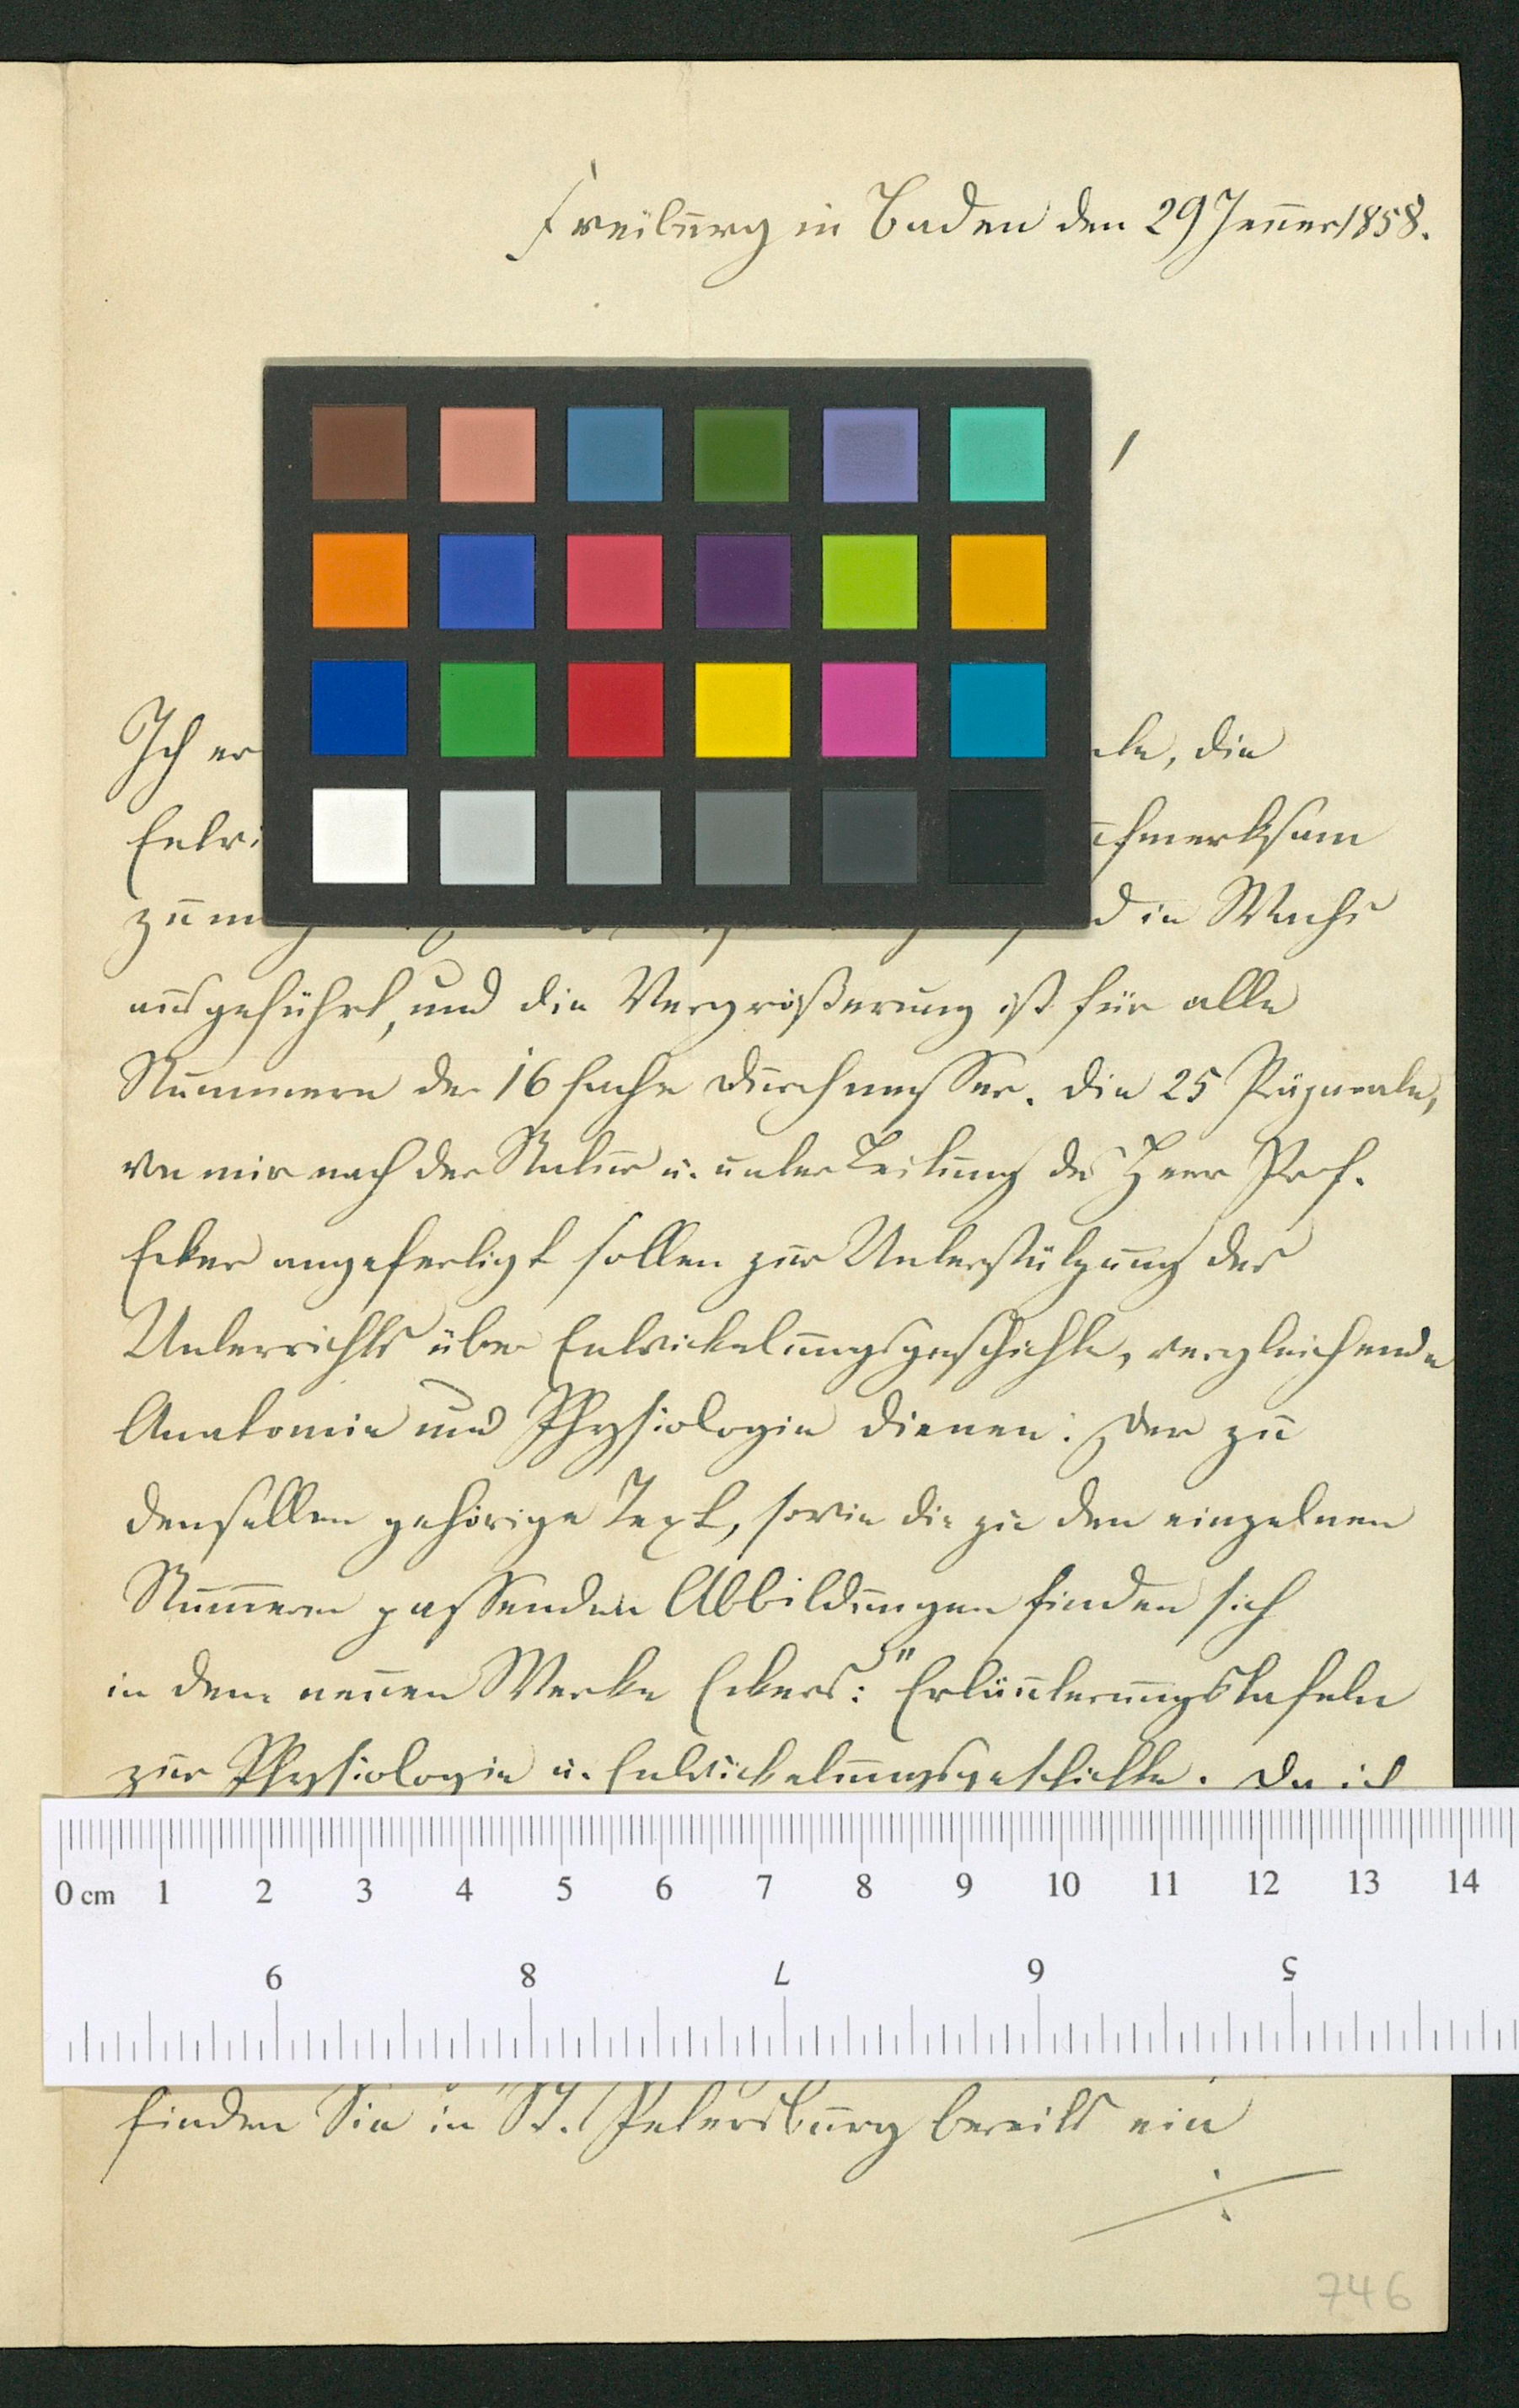 Freiburg in Baden den 29 Jenner 1858.
Ich er
ele, die
Entwi
ufmerksam
zu m
d in Wachs
ausgeführt, und die Vergrößerung ist für alle
Nummern der 16 fache Durchmesser. Die 25 Präparate,
von mir nach der Natur u. unter Leitung des Herr Prof.
Ecker angefertigt sollen zur Unterstützung des
Unterrichts über Entwickelungsgeschichte, vergleichende
Anatomie und Physiologie dienen. Der zu
denselben gehörige Text, sowie die zu den einzelnen
Nummern passenden Abbildungen finden sich
in dem neuen Werke Eckers: "Erläuterungstafeln
zur Physiologie u. Entwickelungsgeschichte. Da ich
0 cm 1 2 3 4 5 6 7 8 9 10 11 12 13 14
9 8 7 6 5
finden Sie in St. Petersburg bereits ein
746